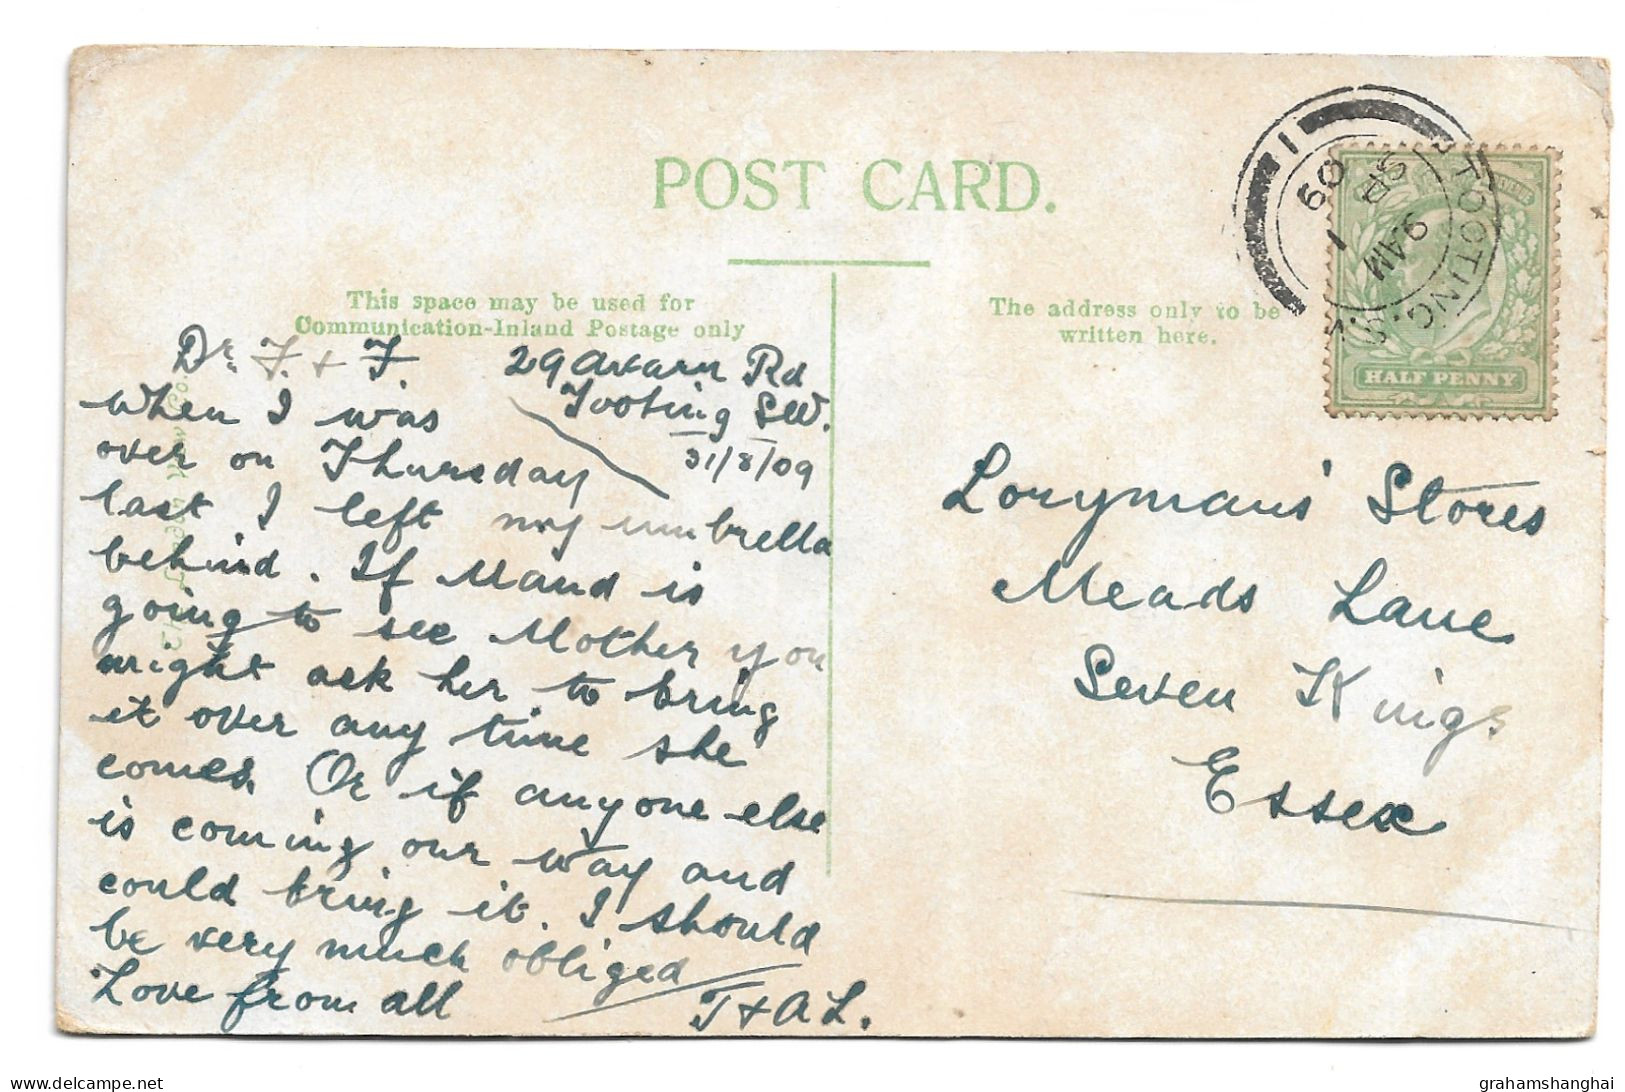 POST CARD.
This space may be used for
Communication-Inland Postage only
The address only to be
written here.
TOOTING. S.W.
9 AM
SP 1
09
1
HALF PENNY
Dr. F. + F.
29 Avarn Rd
Tooting SW.
31/8/09
When I was
over on Thursday
last I left my umbrella
behind. If Maud is
going to see Mother you
might ask her to bring
it over any time she
comes. Or if anyone else
is coming our way and
could bring it. I should
be very much obliged
Love from all
T + A L.
Lorymans' Stores
Meads Lane
Seven Kings
Essex
delcampe.net
grahamshanghai